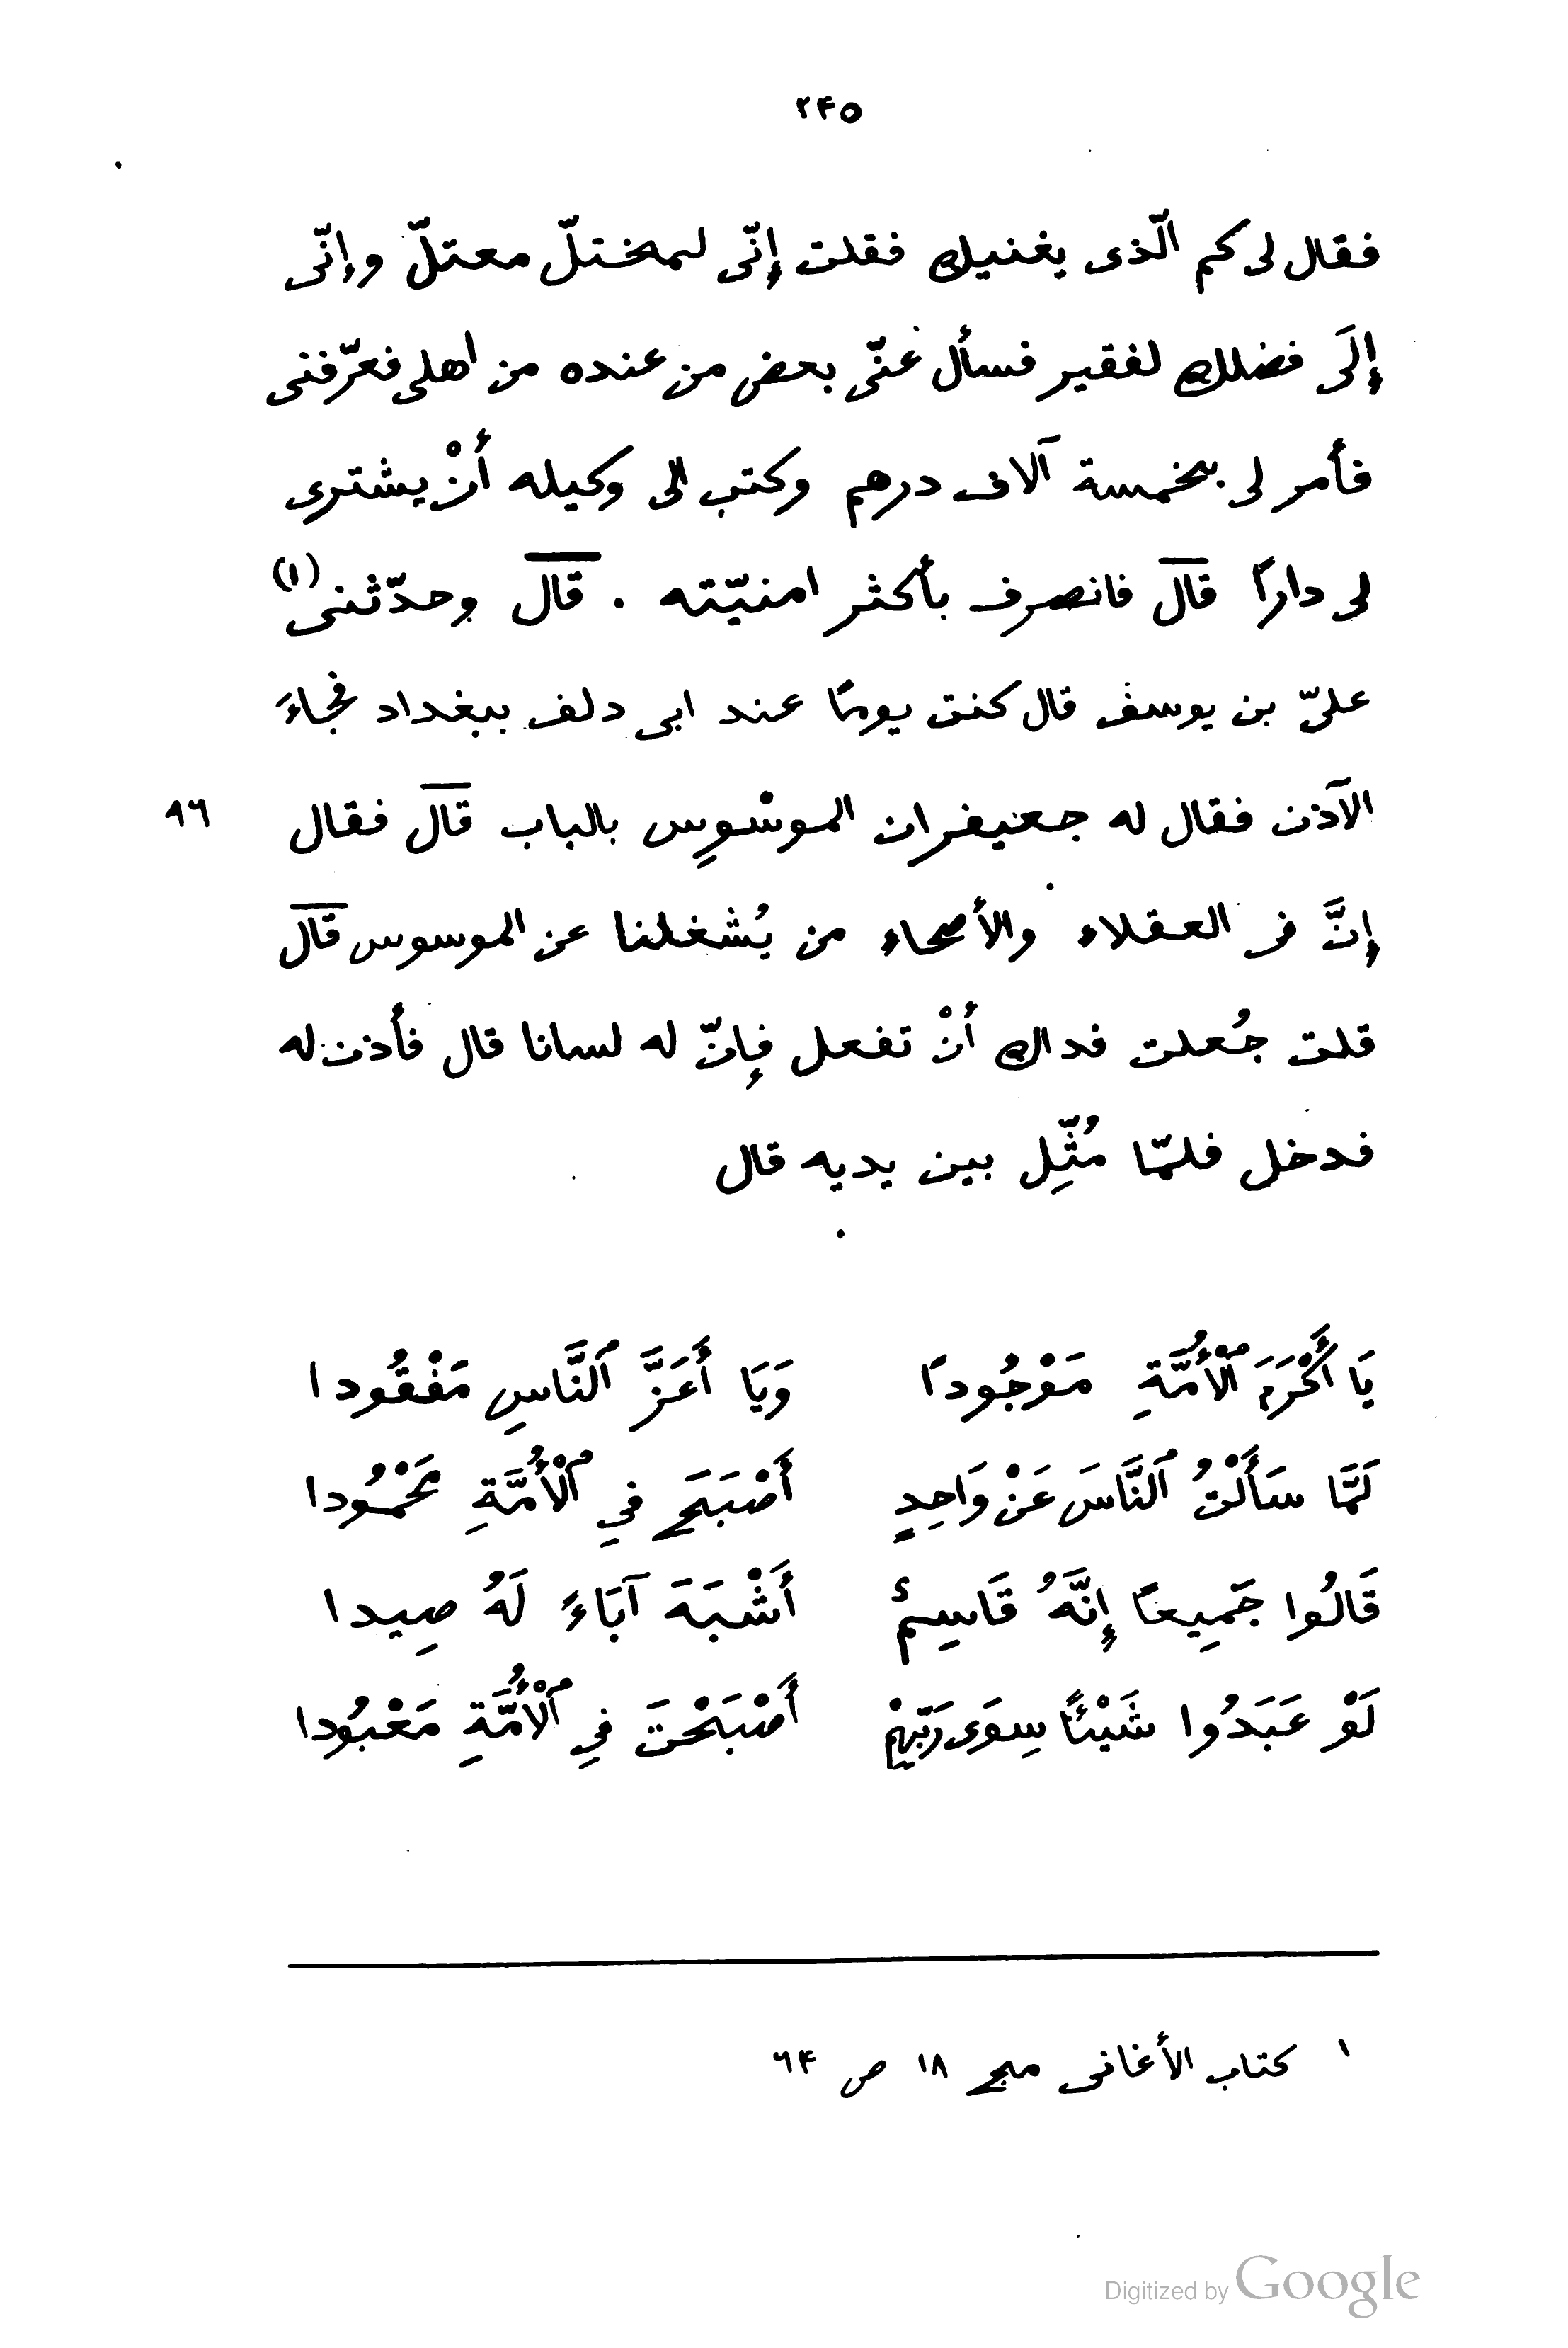 ٢۴٥
فقال لى كم الّذى يغنيك فقلت إنّى لمختلّ معتلّ وإنّى
إلَى فضلك لفقير فسأل عنّى بعض من عنده من اهلى فعرّفنى
فأمر لى بخمسة آلاف درهم وكتب الى وكيله أنْ يشترى
لى دارًا قالَ فانصرف بأكثر امنيّته . قالَ وحدّثنى (١)
علىّ بن يوسف قال كنت يومًا عند ابى دلف ببغداد فجاءَ
الآذن فقال له جعيفران الموسْوِس بالباب قالَ فقال ٩٦
إنَّ فى العقلاء والأصحاء من يُشغلنا عن الموسوس قالَ
قلت جُعلت فداك أنْ تفعل فإنّ له لسانا قال فأذن له
فدخل فلمّا مُثِّل بين يديه قال
يَا أَكْرَمَ ٱلْأُمَّةِ مَوْجُودًا وَيَا أَعَزَّ ٱلنَّاسِ مَفْقُودا
لَمَّا سَأَلْتُ ٱلنَّاسَ عَنْ وَاحِدٍ أَصْبَحَ فِي ٱلْأُمَّةِ مَحْمُودا
قَالُوا جَمِيعًا إِنَّهُ قَاسِمٌ أَشْبَهَ آبَاءً لَهُ صِيدا
لَوْ عَبَدُوا شَيْئًا سِوَى رَبِّهِمْ أَصْبَحْتَ فِي ٱلْأُمَّةِ مَعْبُودا
١ كتاب الأغانى مجـ ١٨ ص ٦۴
Digitized by Google